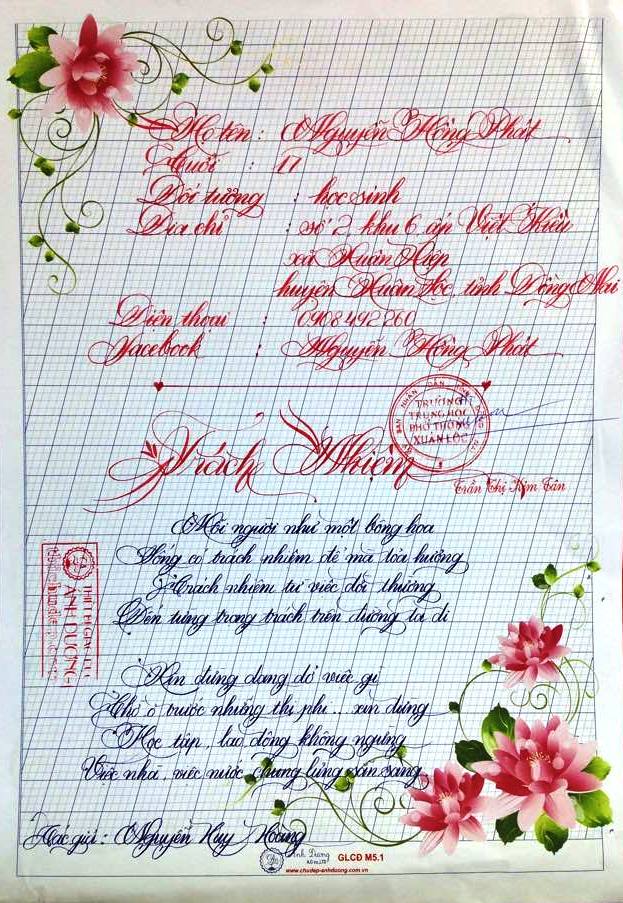 Họ tên : Nguyễn Hồng Phát
Tuổi : 17
Đối tượng : học sinh
Địa chỉ : số 2 khu 6 ấp Việt Kiều
xã Xuân Hiệp
huyện Xuân Lộc, tỉnh Đồng Nai
Điện thoại : 0908492260
Facebook : Nguyễn Hồng Phát
TRƯỜNG
TRUNG HỌC
PHỔ THÔNG
XUÂN LỘC
Trách Nhiệm
Trần Thị Kim Tân
Mỗi người như một bông hoa
Sống có trách nhiệm để mà tỏa hương
Trách nhiệm từ việc đời thường
Đến từng trọng trách trên đường ta đi
Xin đừng dang dở việc gì
Chớ ở trước những thị phi... xin đừng
Học tập, lao động không ngừng
Việc nhà, việc nước chung lưng sẵn sàng
Tác giả : Nguyễn Huy Hoàng
ÁNH DƯƠNG
Ánh Dương
GLCĐ M5.1
www.chudep-anhduong.com.vn